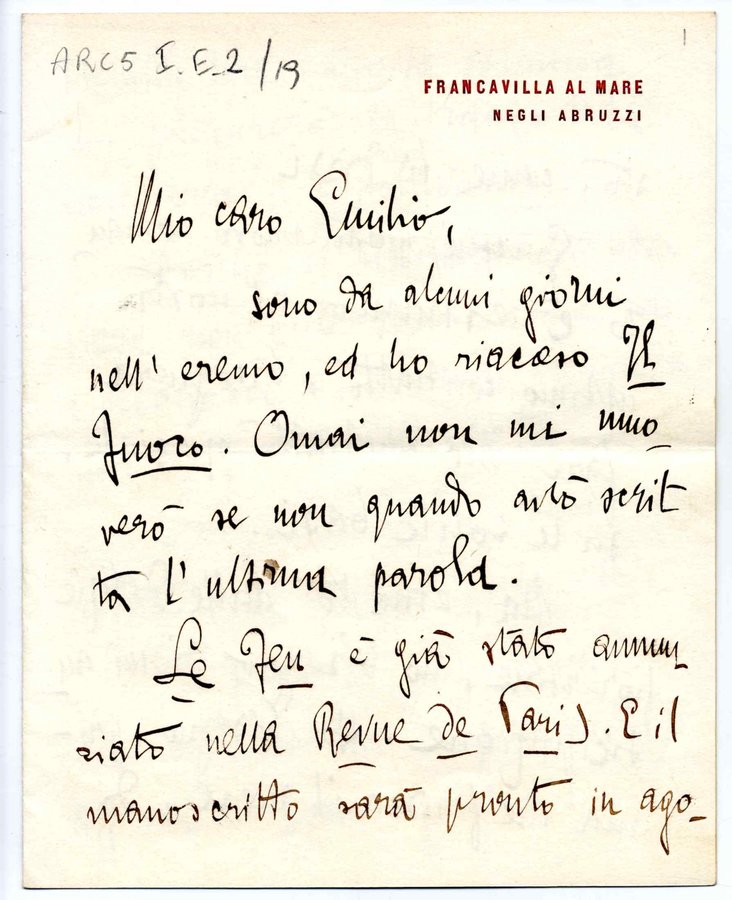 ARC5 I.E.2/19
1
FRANCAVILLA AL MARE
NEGLI ABRUZZI
Mio caro Emilio,
sono da alcuni giorni
nell' eremo, ed ho riacceso Il
Fuoco. Omai non mi muo-
verò se non quando avrò scrit
ta l'ultima parola.
Le Feu è già stato annun
ziato nella Revue de Paris. E il
manoscritto sarà pronto in ago-